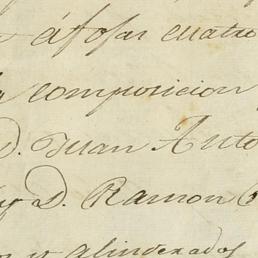 á fojas cuatro
composicion
D. Juan Anto
y D. Ramon
y alinderados